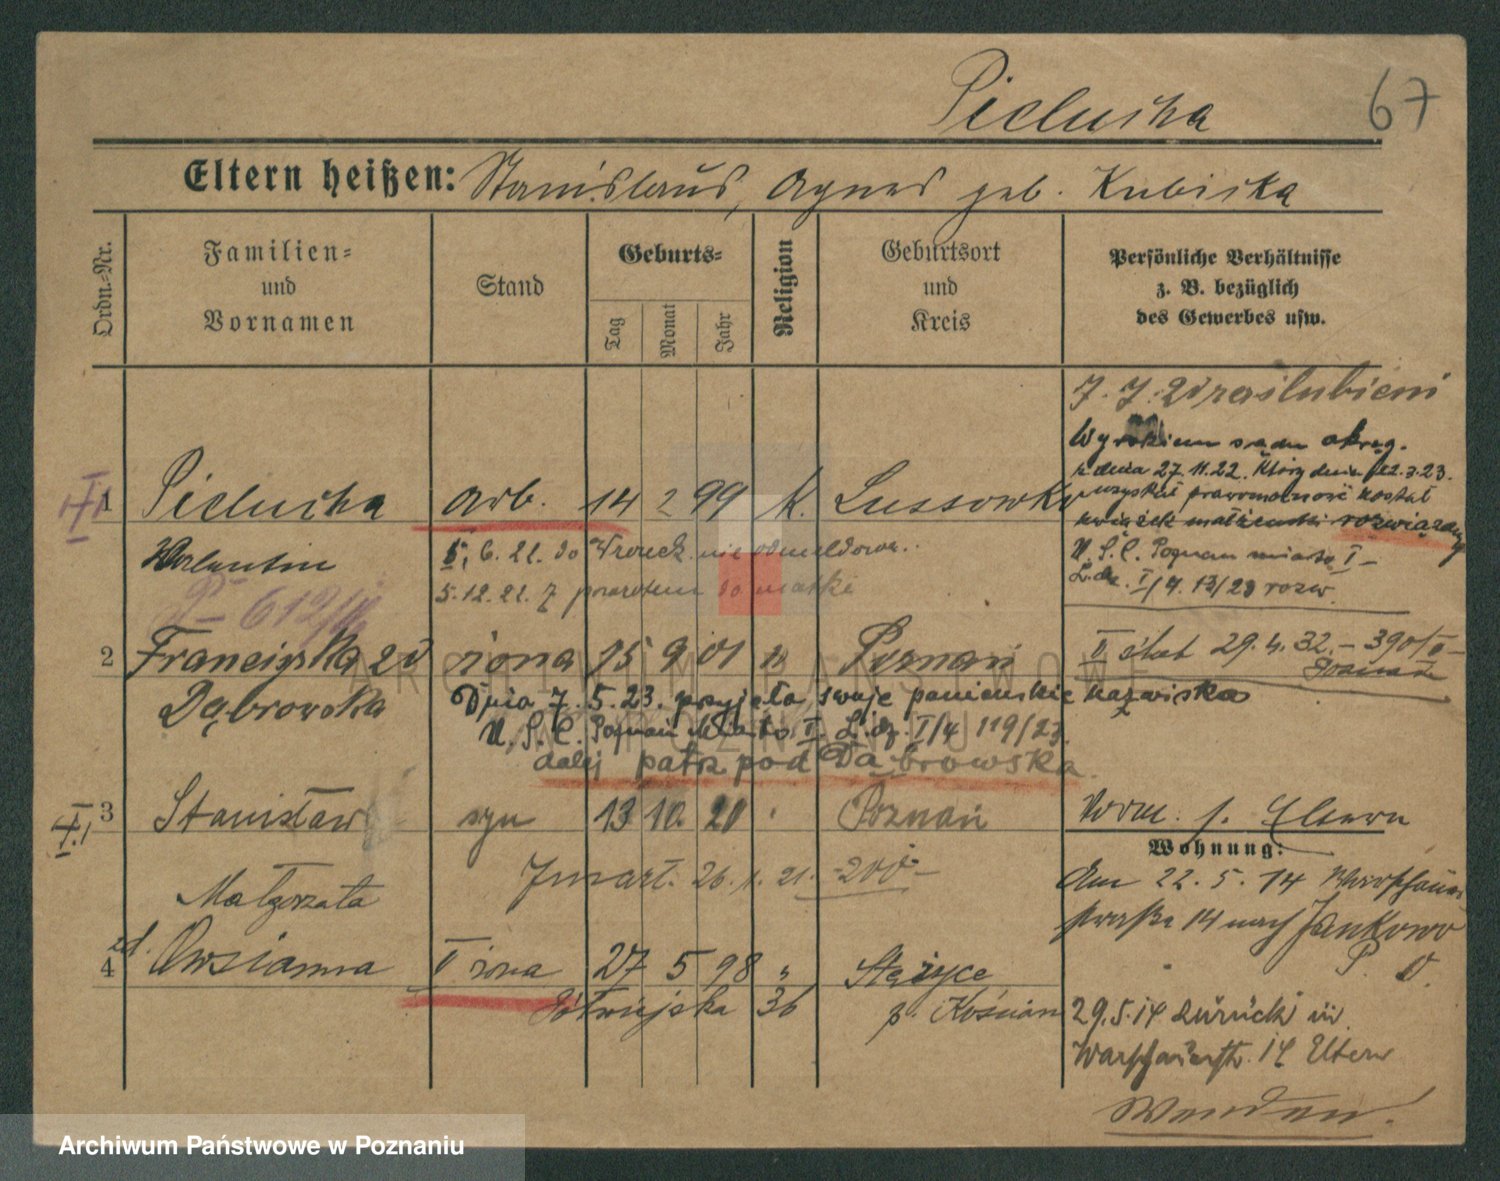 Pielucha 67
Eltern heißen: Stanislaus, Agnes geb. Kubiska
Ordn.-Nr.
Familien-
und
Vornamen
Stand
Geburts-
Tag
Monat
Jahr
Religion
Geburtsort
und
Kreis
Persönliche Verhältnisse
z. B. bezüglich
des Gewerbes usw.
Wyrokiem sądu okręg.
z dnia 27.11.22. który dnia 12.3.23.
uzyskał prawomocność został
związek małżeński rozwiązany
U. S. C. Poznań miasto I
L.dz. I/4. 13/23 rozw.
1 Pielucha arb. 14 2 99 k. Lussowko
Walentin
5.6.21. do Wronek nie odmeldow.
5.12.21. z powrotem do matki
P-612/
2 Franciszka zd żona 15 9 01 k Poznań
II ślub 29.4.32.-390/II-
Poznań
Dąbrowska
Dnia 7.5.23. przyjęła swoje panieńskie nazwisko
U. S. C. Poznań Miasto I L.dz. I/4 119/23
dalej patrz pod Dąbrowska
3 Stanisław syn 13 10. 20 Poznań
Zmarł. 26.1.21.
Małgorzata
zd.
4 Owsianna II żona 27 5 98 " Stężyce
36 p. Kościan
Worm. s. Eltern
Wohnung:
Am 22.5.14 Warschauer
straße 14 nach Jankowo
P. O.
29.5.14 zurück in
Warschauerstr. 14 Eltern
Wenden!
ARCHIWUM PAŃSTWOWE
W POZNANIU
Archiwum Państwowe w Poznaniu